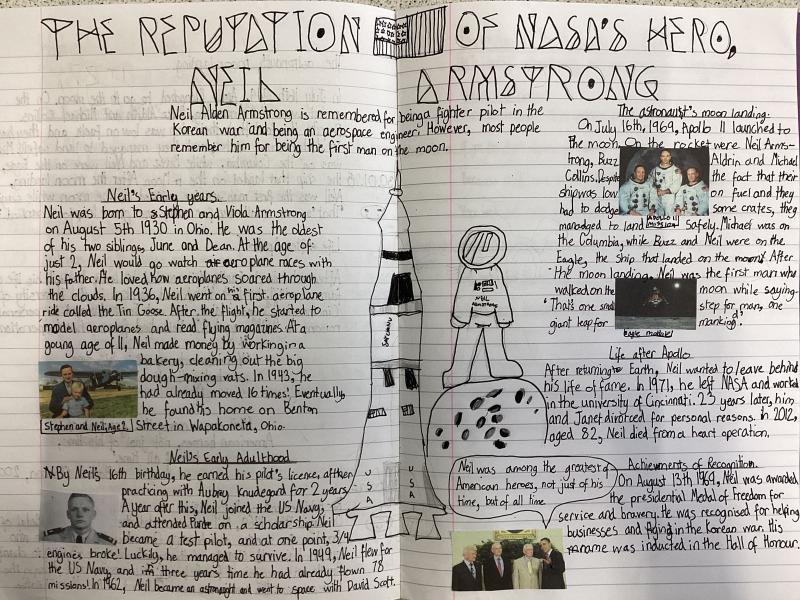 THE REPUTATION OF NASA'S HERO,
NEIL ARMSTRONG
Neil Alden Armstrong is remembered for being a fighter pilot in the
Korean war and being an aerospace engineer. However, most people
remember him for being the first man on the moon.
Neil's Early years.
Neil was born to Stephen and Viola Armstrong
on August 5th 1930 in Ohio. He was the oldest
of his two siblings, June and Dean. At the age of
just 2, Neil would go watch aeroplane races with
his father. He loved how aeroplanes soared through
the clouds. In 1936, Neil went on his first aeroplane
ride called the Tin Goose. After the flight, he started to
model aeroplanes and read flying magazines. At a
young age of 11, Neil made money by working in a
bakery, cleaning out the big
dough-mixing vats. In 1943, he
had already moved 16 times! Eventually,
he found his home on Benton
Street in Wapakoneta, Ohio.
Stephen and Neil, Age 2
Neil's Early Adulthood
By Neil's 16th birthday, he earned his pilot's licence, after
practicing with Aubrey Knudegard for 2 years
A year after this, Neil joined the US Navy,
and attended Purdue on a scholarship. Neil
became a test pilot, and at one point, 3/4
engines broke! Luckily, he managed to survive. In 1949, Neil flew for
the US Navy, and in three years time he had already flown 78
missions! In 1962, Neil became an astronaught and went to space with David Scott.
USA
USA
NEIL
ARMSTRONG
The astronaut's moon landing.
On July 16th, 1969, Apollo 11 launched to
the moon. On the rocket were Neil Arms-
trong, Buzz Aldrin and Michael
Collins. Despite the fact that their
ship was low on fuel and they
had to dodge some crates, they
managed to land safely. Michael was on
APOLLO 11 MISSION
the Columbia, while Buzz and Neil were on the
Eagle, the ship that landed on the moon! After
the moon landing, Neil was the first man who
walked on the moon while saying-
"That's one small step for man, one
giant leap for mankind."
Life after Apollo
After returning Earth, Neil wanted to leave behind
his life of fame. In 1971, he left NASA and worked
in the university of Cincinnati. 23 years later, him
and Janet divorced for personal reasons. In 2012,
aged 82, Neil died from a heart operation.
Neil was among the greatest of
American heroes, not just of his
time, but of all time.
Achievements of Recognition.
On August 13th 1969, Neil was awarded
the presidential Medal of Freedom for
service and bravery. He was recognised for helping
businesses and flying in the Korean war. His
name was inducted in the Hall of Honour.